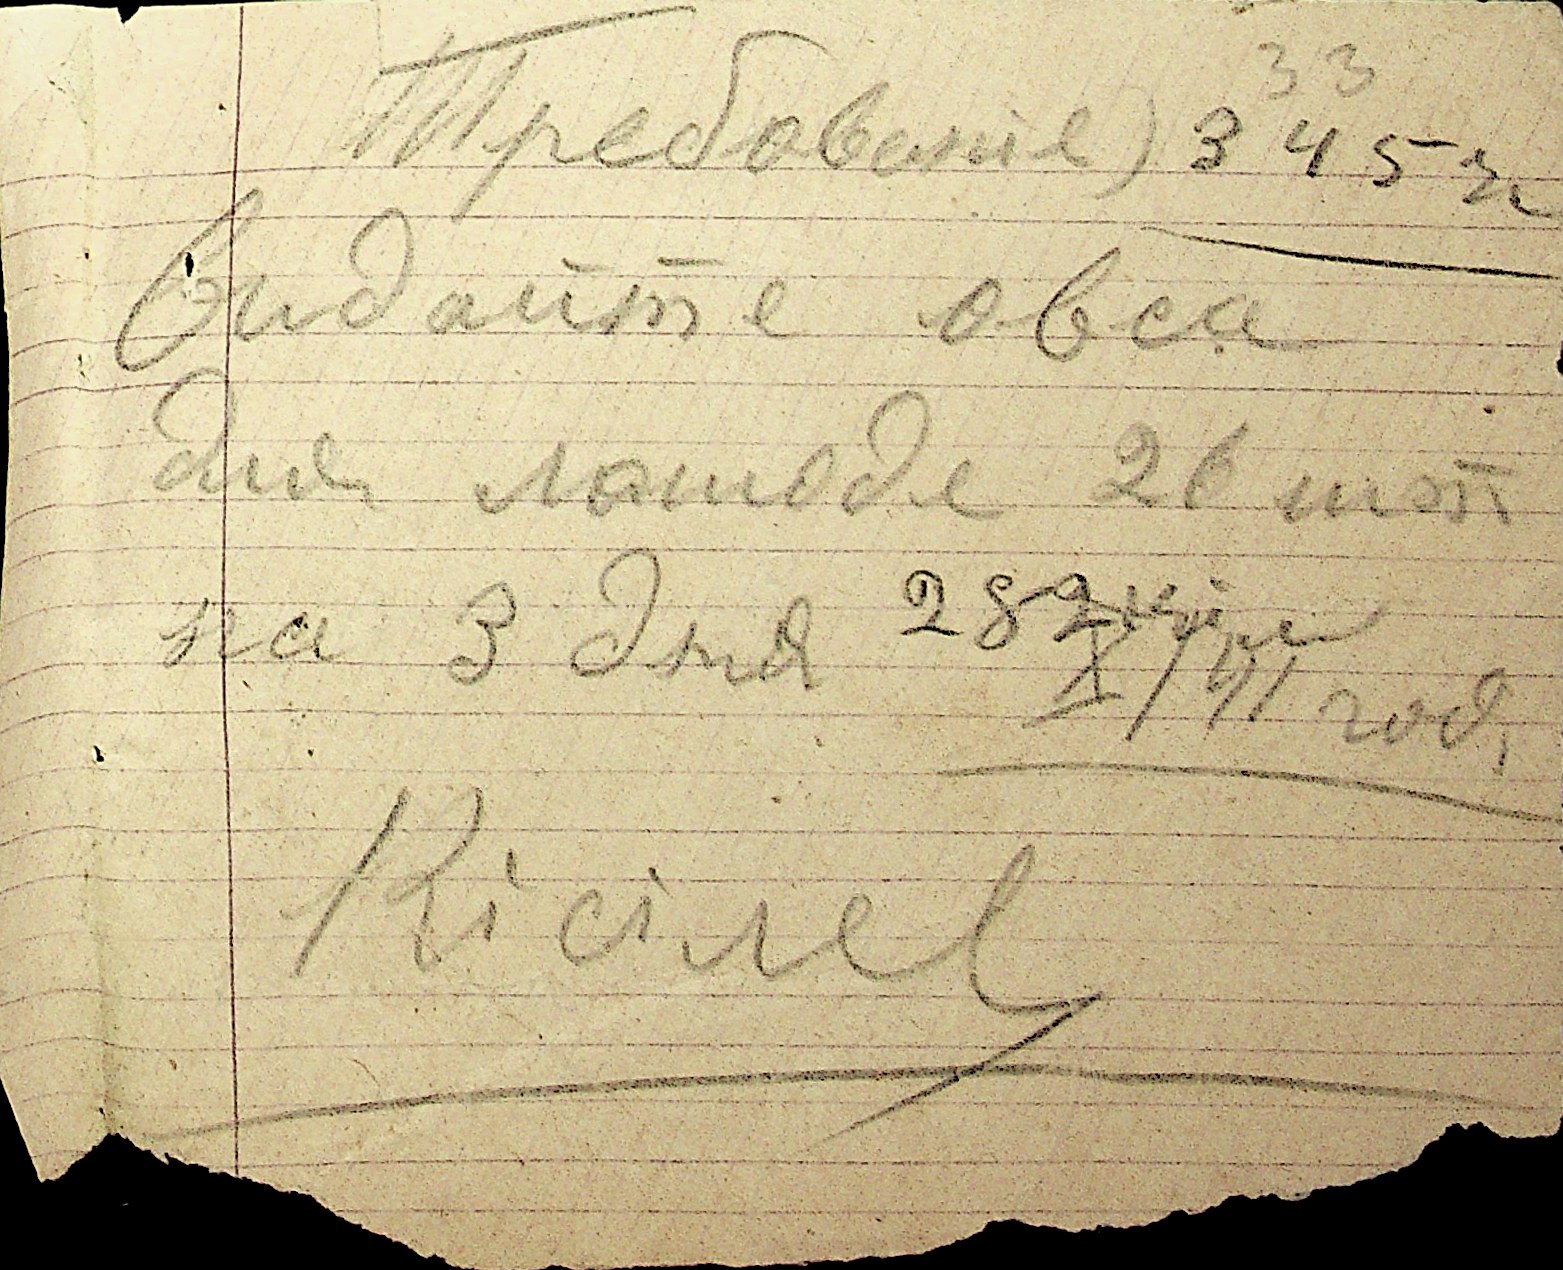 33
Требование) 345 г
Видайте овса
для лошоде 26 шт
на 3 дня 28
X/41 год,
Кісілев